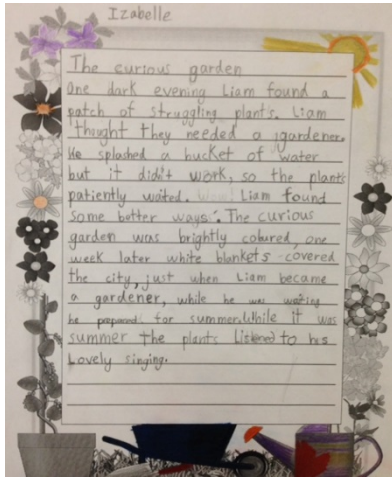 Izabelle
The curious garden
One dark evening Liam found a
patch of struggling plants. Liam
thought they needed a gardener.
He splashed a bucket of water
but it didn't work, so the plants
patiently waited. Liam found
some better ways. The curious
garden was brightly coloured, one
week later white blankets covered
the city, just when Liam became
a gardener, while he was waiting
he prepared for summer. While it was
summer the plants Listened to his
Lovely singing.